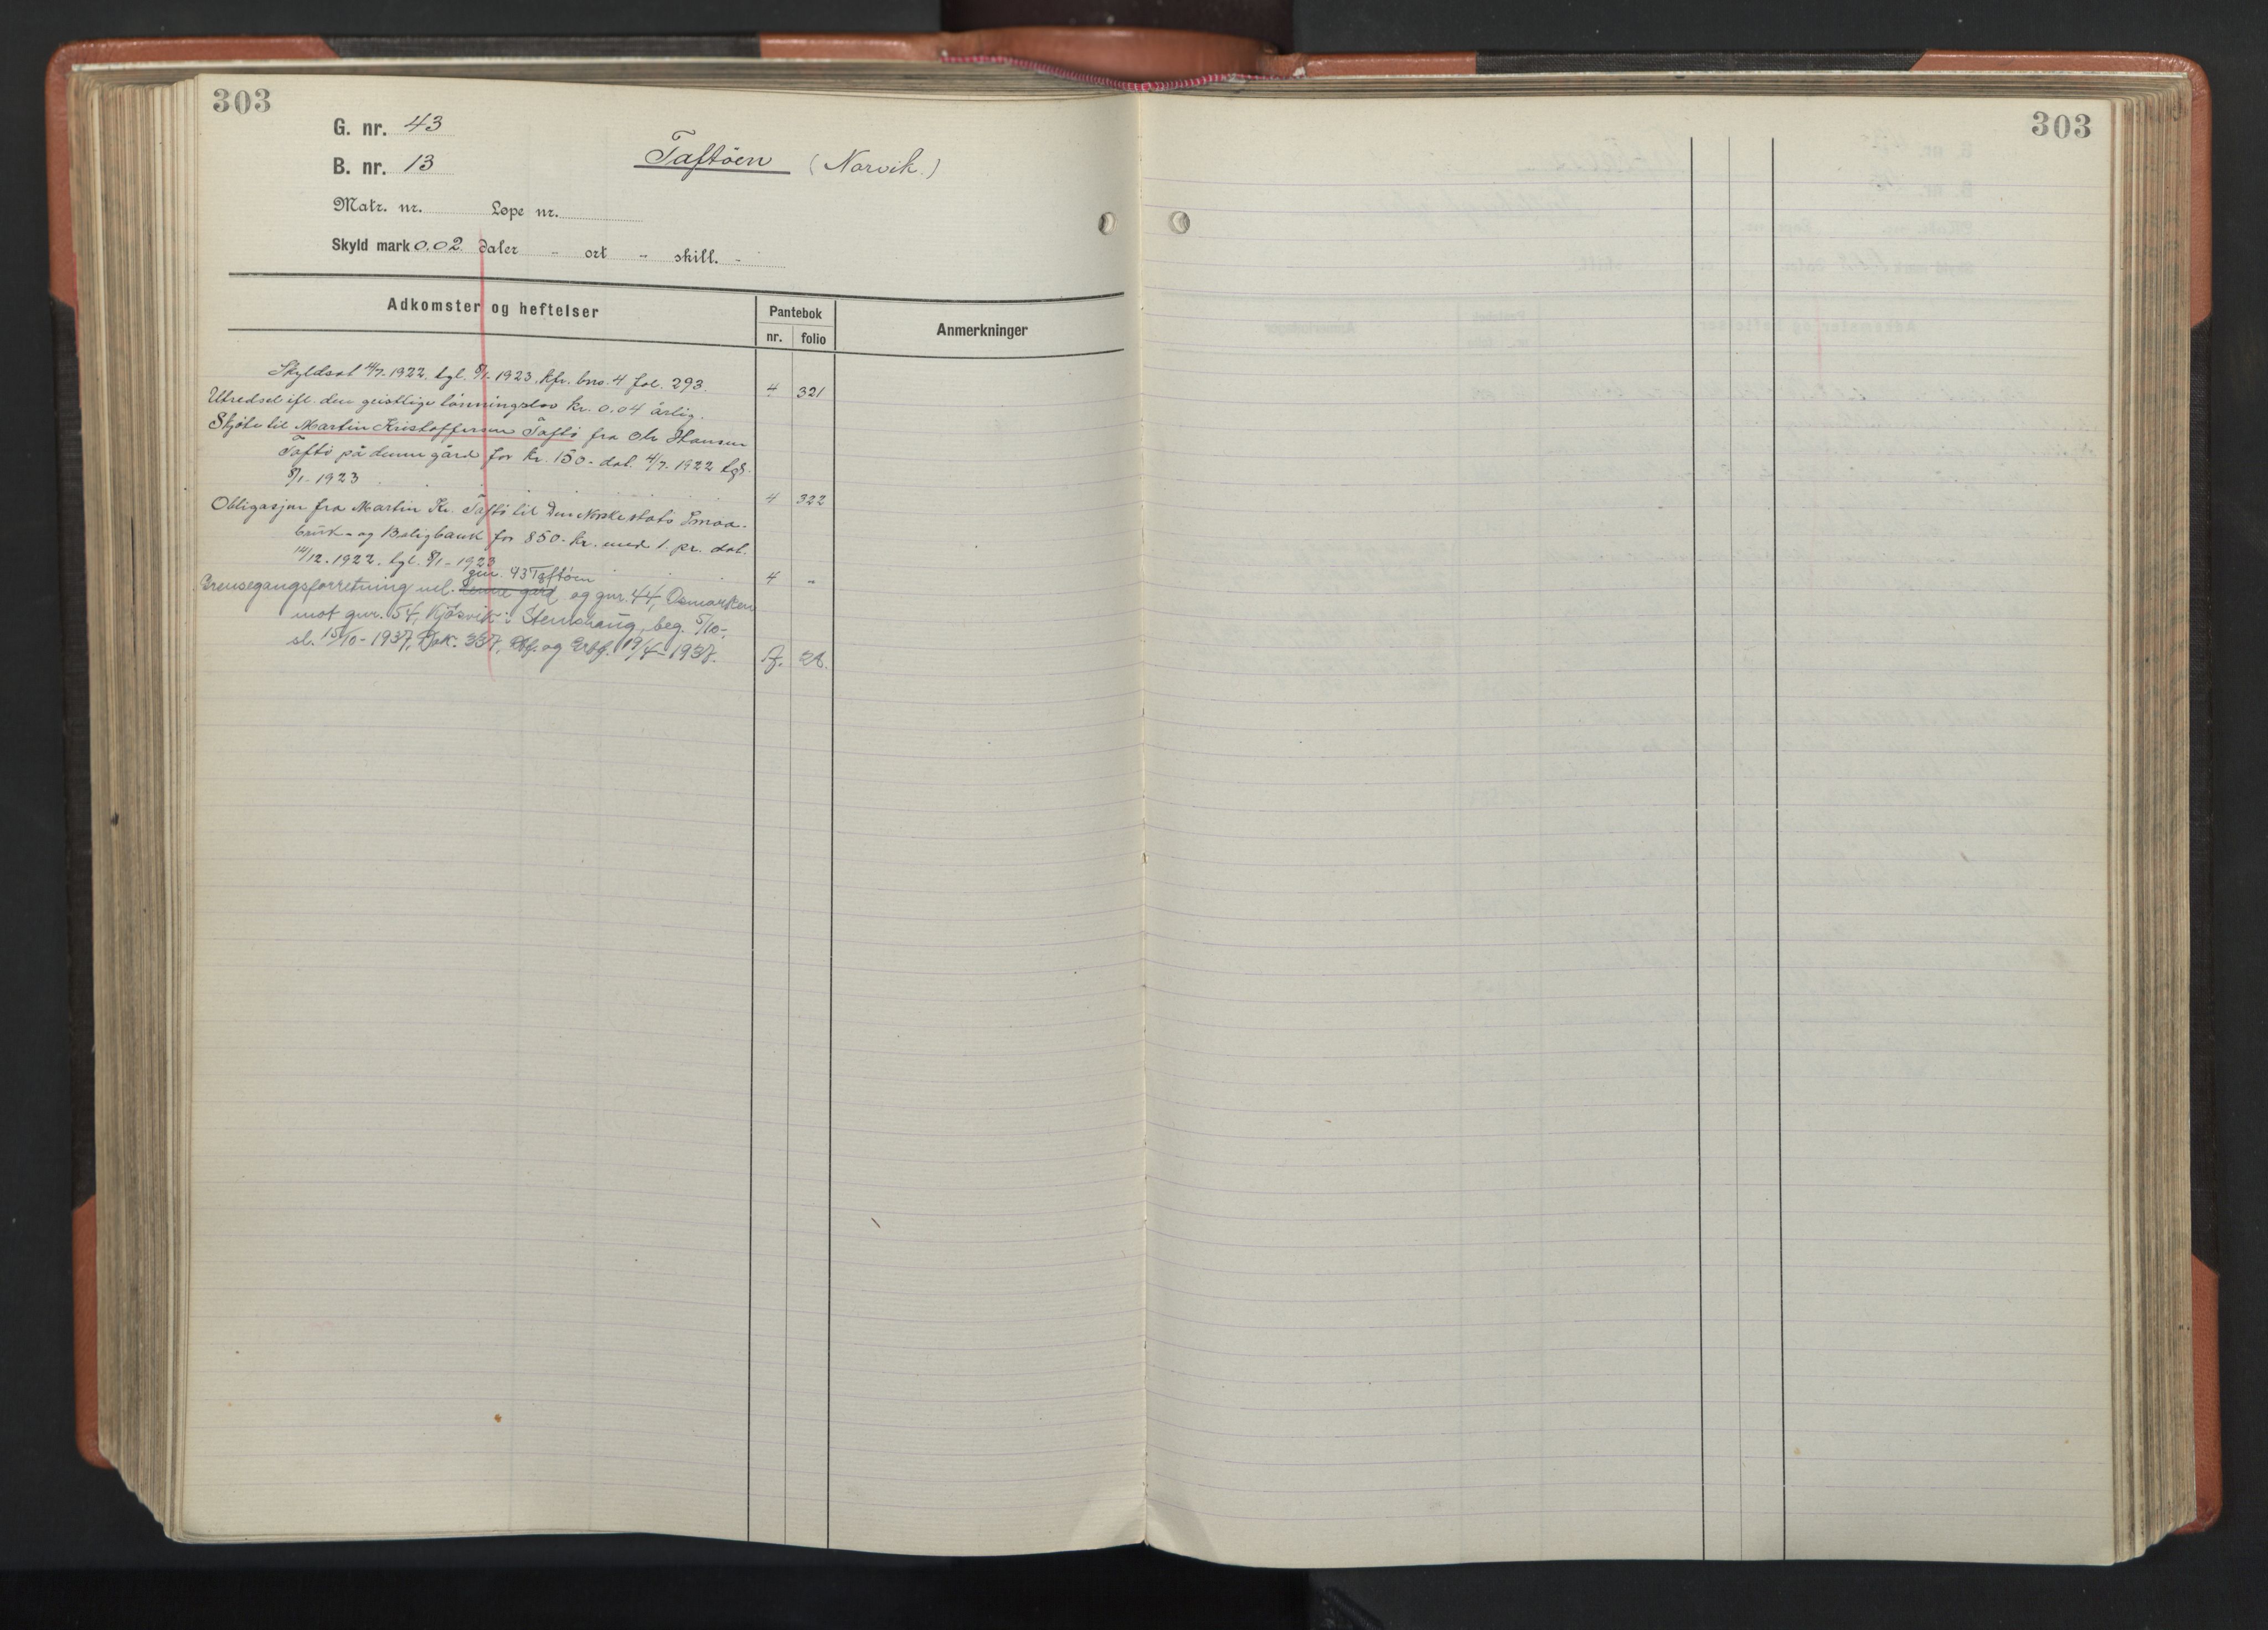 303
303
G. nr. 43
B. nr. 13
Taftöen (Narvik.)
Matr. nr. Løpe nr.
Skyld mark 0.02 daler - ort - skill. -
Adkomster og heftelser
Pantebok
nr. folio
Anmerkninger
Skyldsat 4/7. 1922. tgl. 8/1. 1923. kfr. bno. 4 fol. 293. 4 321
Utredsel ifl. den geistlige lönningslov kr. 0.04 årlig.
Skjöte til Martin Kristoffersen Taftö fra Ole Hansen
Taftö på denne gård for kr. 150.- dat. 4/7. 1922 tgl.
8/1. 1923 4 322
Obligasjon fra Martin Kr. Taftö til Den Norske stats Smaa-
bruk- og Boligbank for 850.- kr. med 1. pr. dat.
14/12. 1922. tgl. 8/1 - 1923 4 "
gnr. 43 Taftöen
Grensegangsforretning vel. denne gård og gnr. 44, Osmarken
mot gnr. 54, Kjösvik i Stemshaug, beg. 5/10-,
sl. 15/10 - 1937, Dok. 357, og 19/4 - 1937.